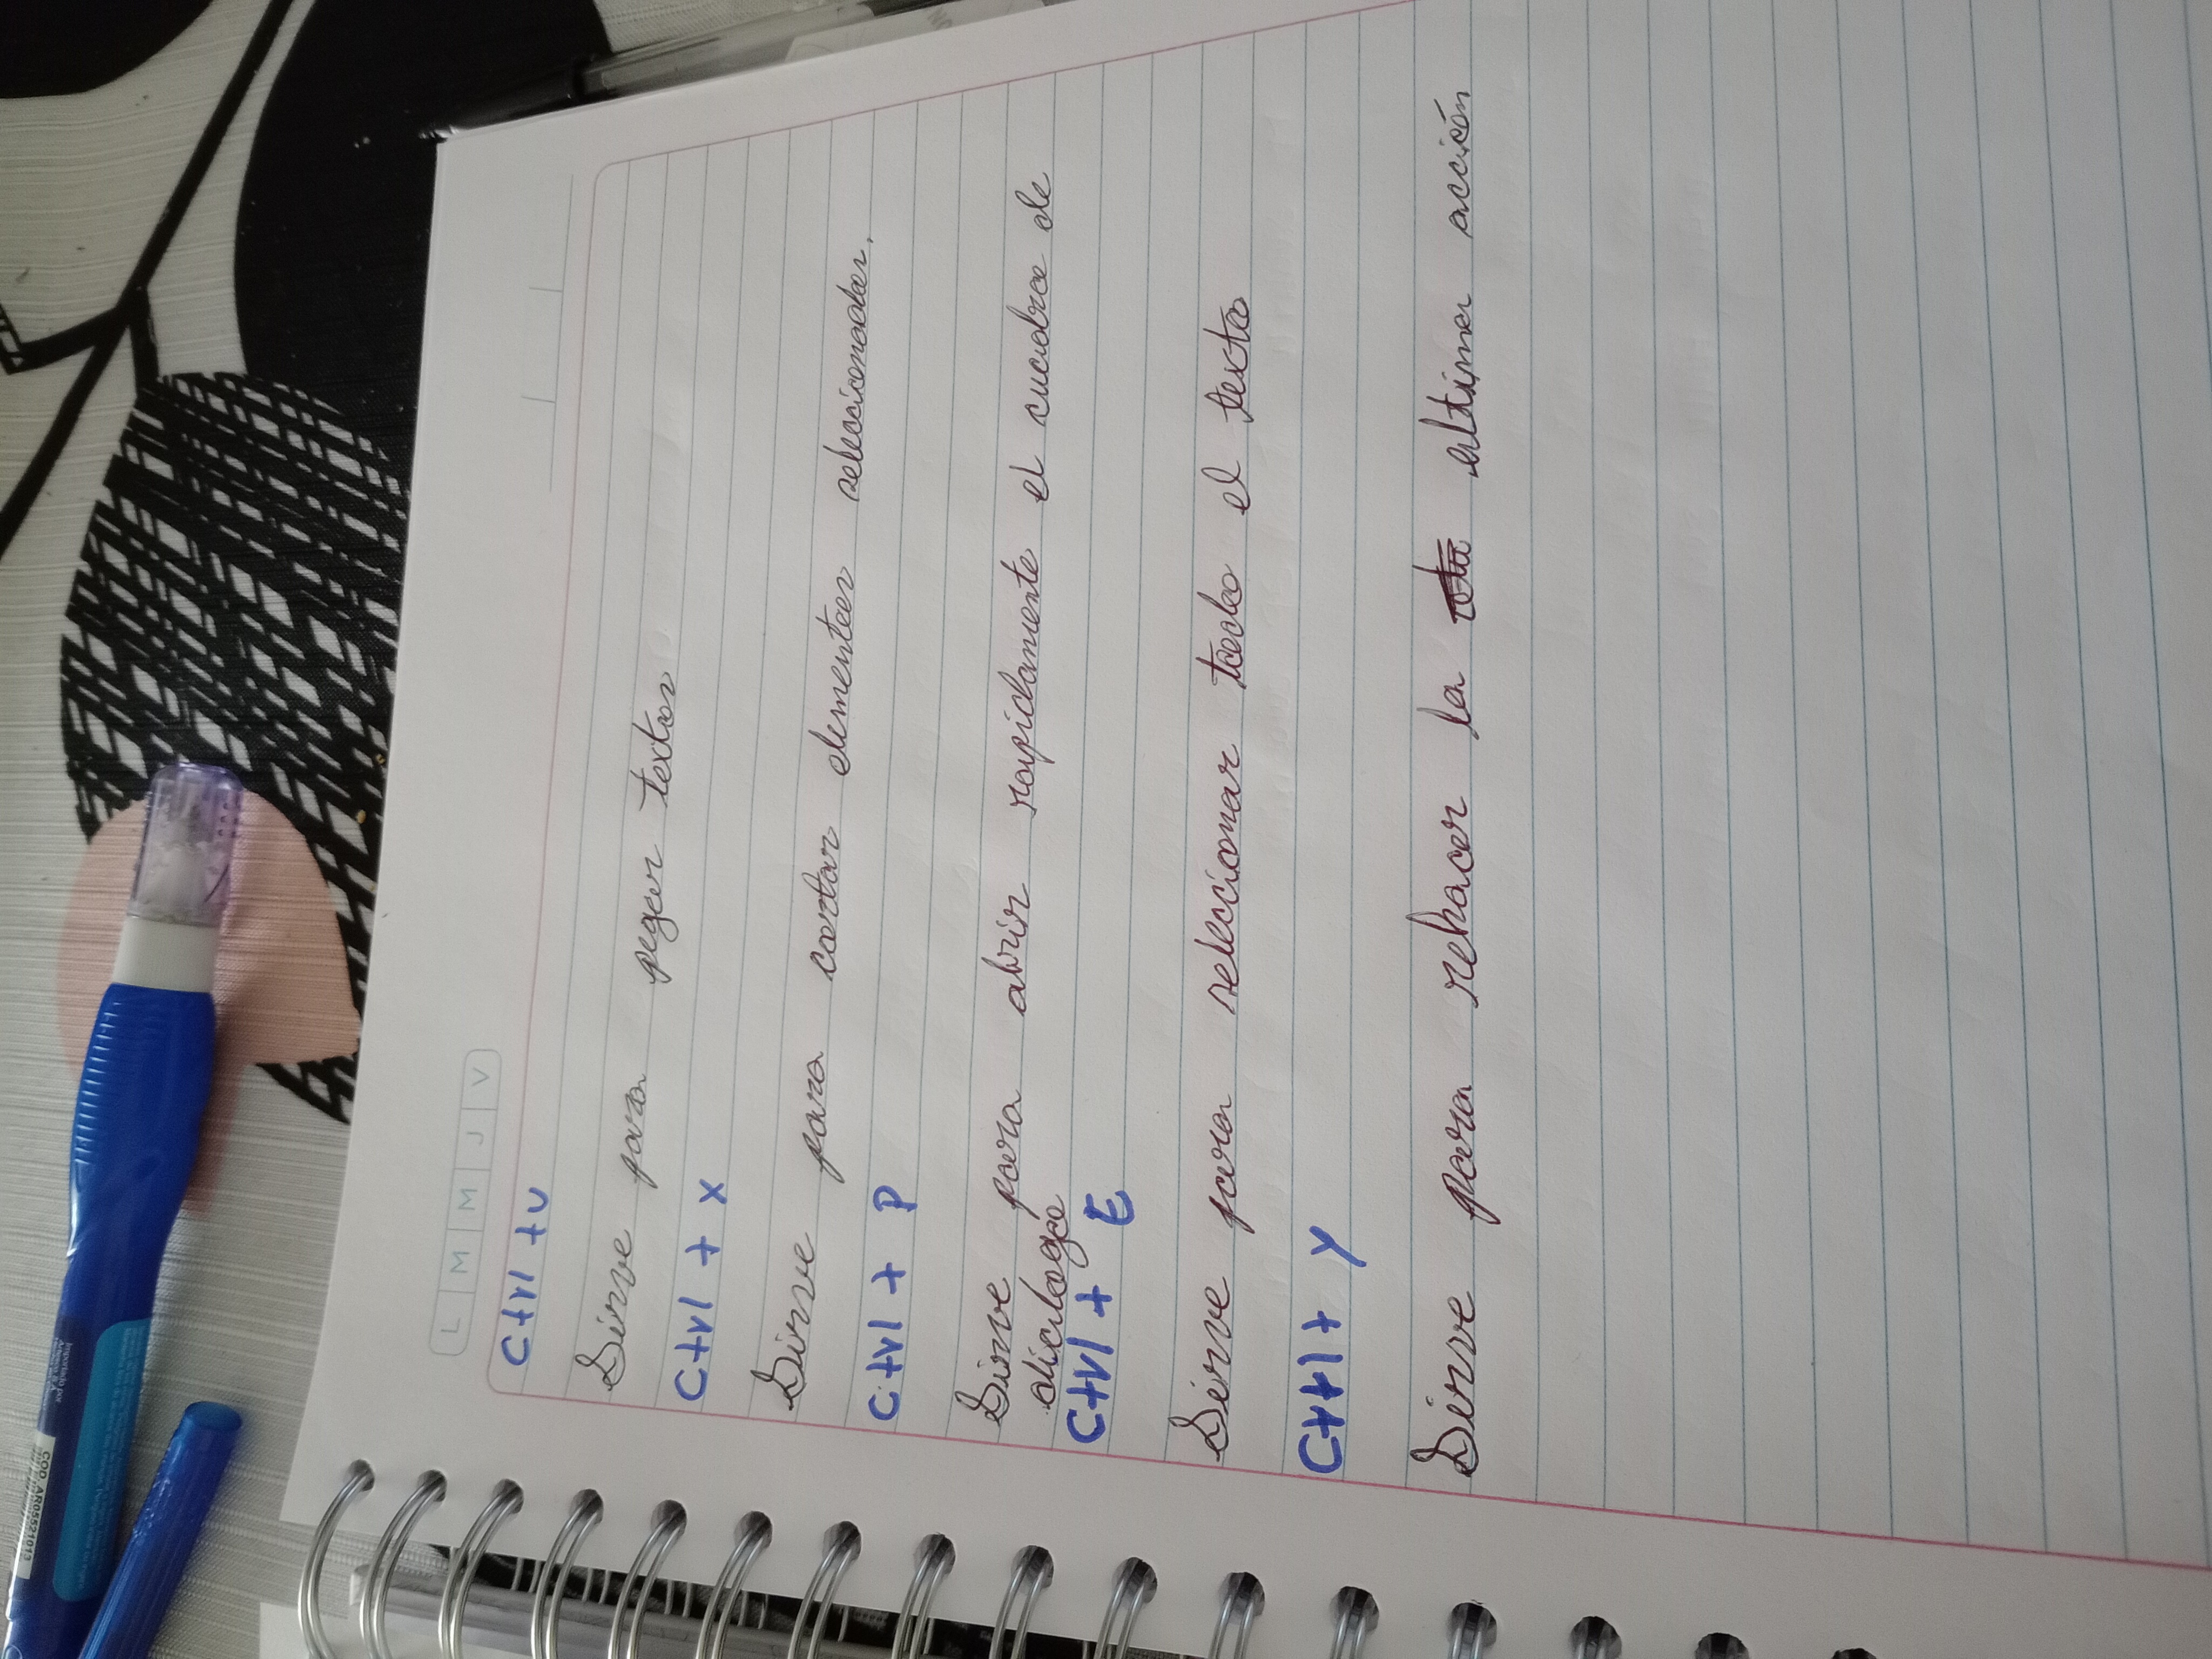 L M M J V
Ctrl + v
Sirve para pegar textos
Ctrl + x
Sirve para cortar elementos seleccionados.
Ctrl + P
Sirve para abrir rapidamente el cuadro de
dialogo
Ctrl + E
Sirve para seleccionar todo el texto
Ctrl + Y
Sirve para rehacer la ultima acción
COD.AR05521013
Importado por